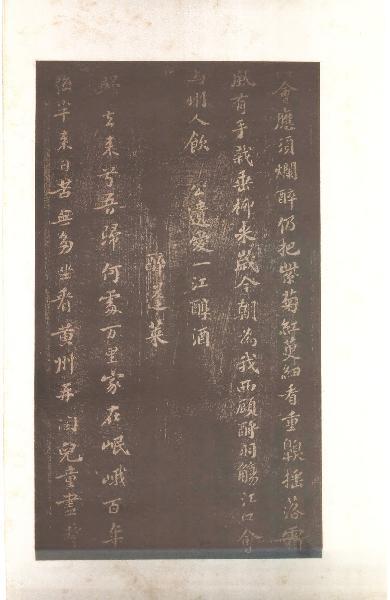 會應須爛醉仍把紫菊紅萸細看重嗅搖落霜
風有手栽垂柳來歲今朝為我西顧酹羽觴江口會
與州人飲 公遺愛一江醇酒
醉蓬萊
歸去來兮吾歸何處万里家在岷峨百年
強半來日苦無多坐看黄州再閏兒童盡楚